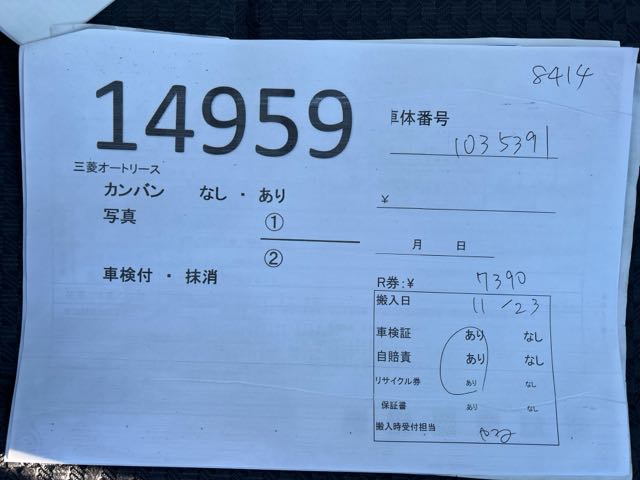 8414
14959
車体番号
1035391
三菱オートリース
カンバン なし ・ あり
¥
写真 ①
月 日
②
車検付 ・ 抹消
R券:¥ 7390
搬入日 11/23
車検証 あり なし
自賠責 あり なし
リサイクル券 あり なし
保証書 あり なし
搬入時受付担当